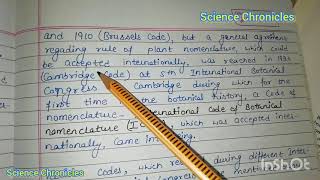 Science Chronicles
and 1910 (Brussels Code), but a general agreement
regading rule of plant nomenclature, which could
be accepted internationally, was reached in 1930
(Cambridge Code) at 5th International Botanical
Congress Cambridge during which for the
first time the botanical history, a Code of
nomenclature International Code of Botanical
nomenclature (I which was accepted inter-
nationally, came in
Codes, which re during different Inter-
Science Chronicles
Made With
InShOt